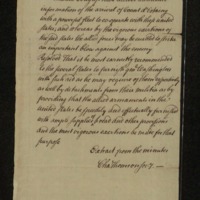 information of the arrival of Count d'Estaing
with a powerful fleet to co operate with these united
states, and whereas by the vigorous exertions of
the said states the allied forces may be enabled to strike
an important blow against the enemy
Resolved That it be most earnestly recommended
to the several states to furnish genl Washington
with such aid as he may require of them respectively
as well by detachments from their militia as by
providing that the allied armaments in the
united States be speedily and effectually furnished
with ample supplies of bread and other provisions
and the most vigorous exertions be made for that
purpose
Extract from the minutes
Cha Thomson secy